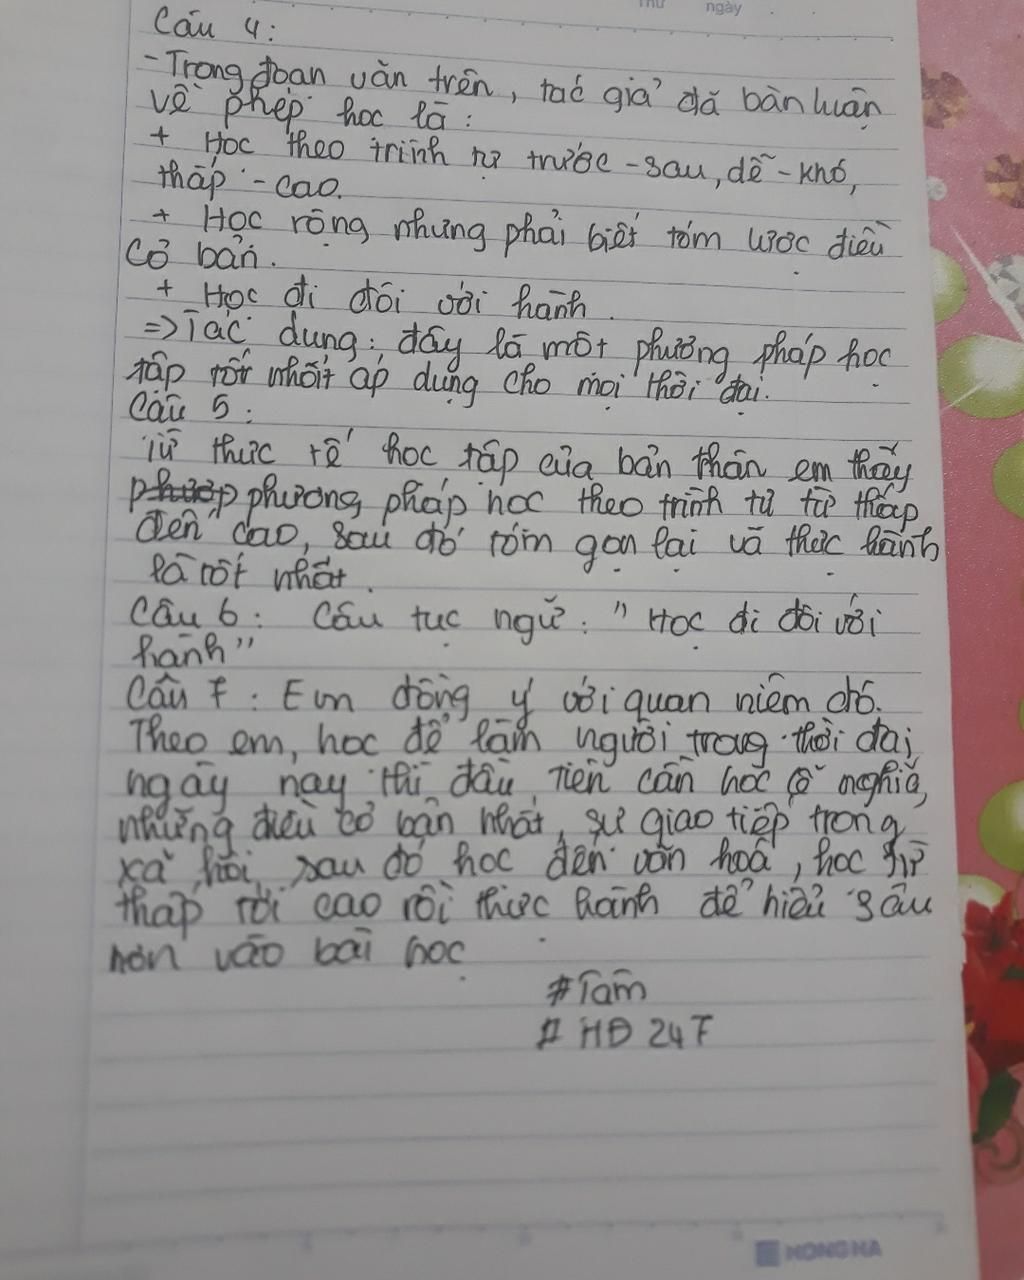 Thứ ngày
Câu 4:
- Trong đoạn văn trên, tác giả đã bàn luận
về phép học là:
+ Học theo trình tự trước - sau, dễ - khó,
thấp - cao.
+ Học rộng nhưng phải biết tóm lược điều
cơ bản.
+ Học đi đôi với hành.
=> Tác dụng: đây là một phương pháp học
tập tốt nhất áp dụng cho mọi thời đại.
Câu 5:
Từ thực tế học tập của bản thân em thấy
phương pháp học theo trình tự từ thấp
đến cao, sau đó tóm gọn lại và thực hành
là tốt nhất.
Câu 6: Câu tục ngữ: "Học đi đôi với
hành"
Câu 7: Em đồng ý với quan niệm đó.
Theo em, học để làm người trong thời đại
ngày nay thì đầu tiên cần học lễ nghĩa,
những điều cơ bản nhất, sự giao tiếp trong
xã hội, sau đó học đến văn hoá, học từ
thấp tới cao rồi thực hành để hiểu sâu
hơn vào bài học
#Tam
# HĐ 247
HONG HA